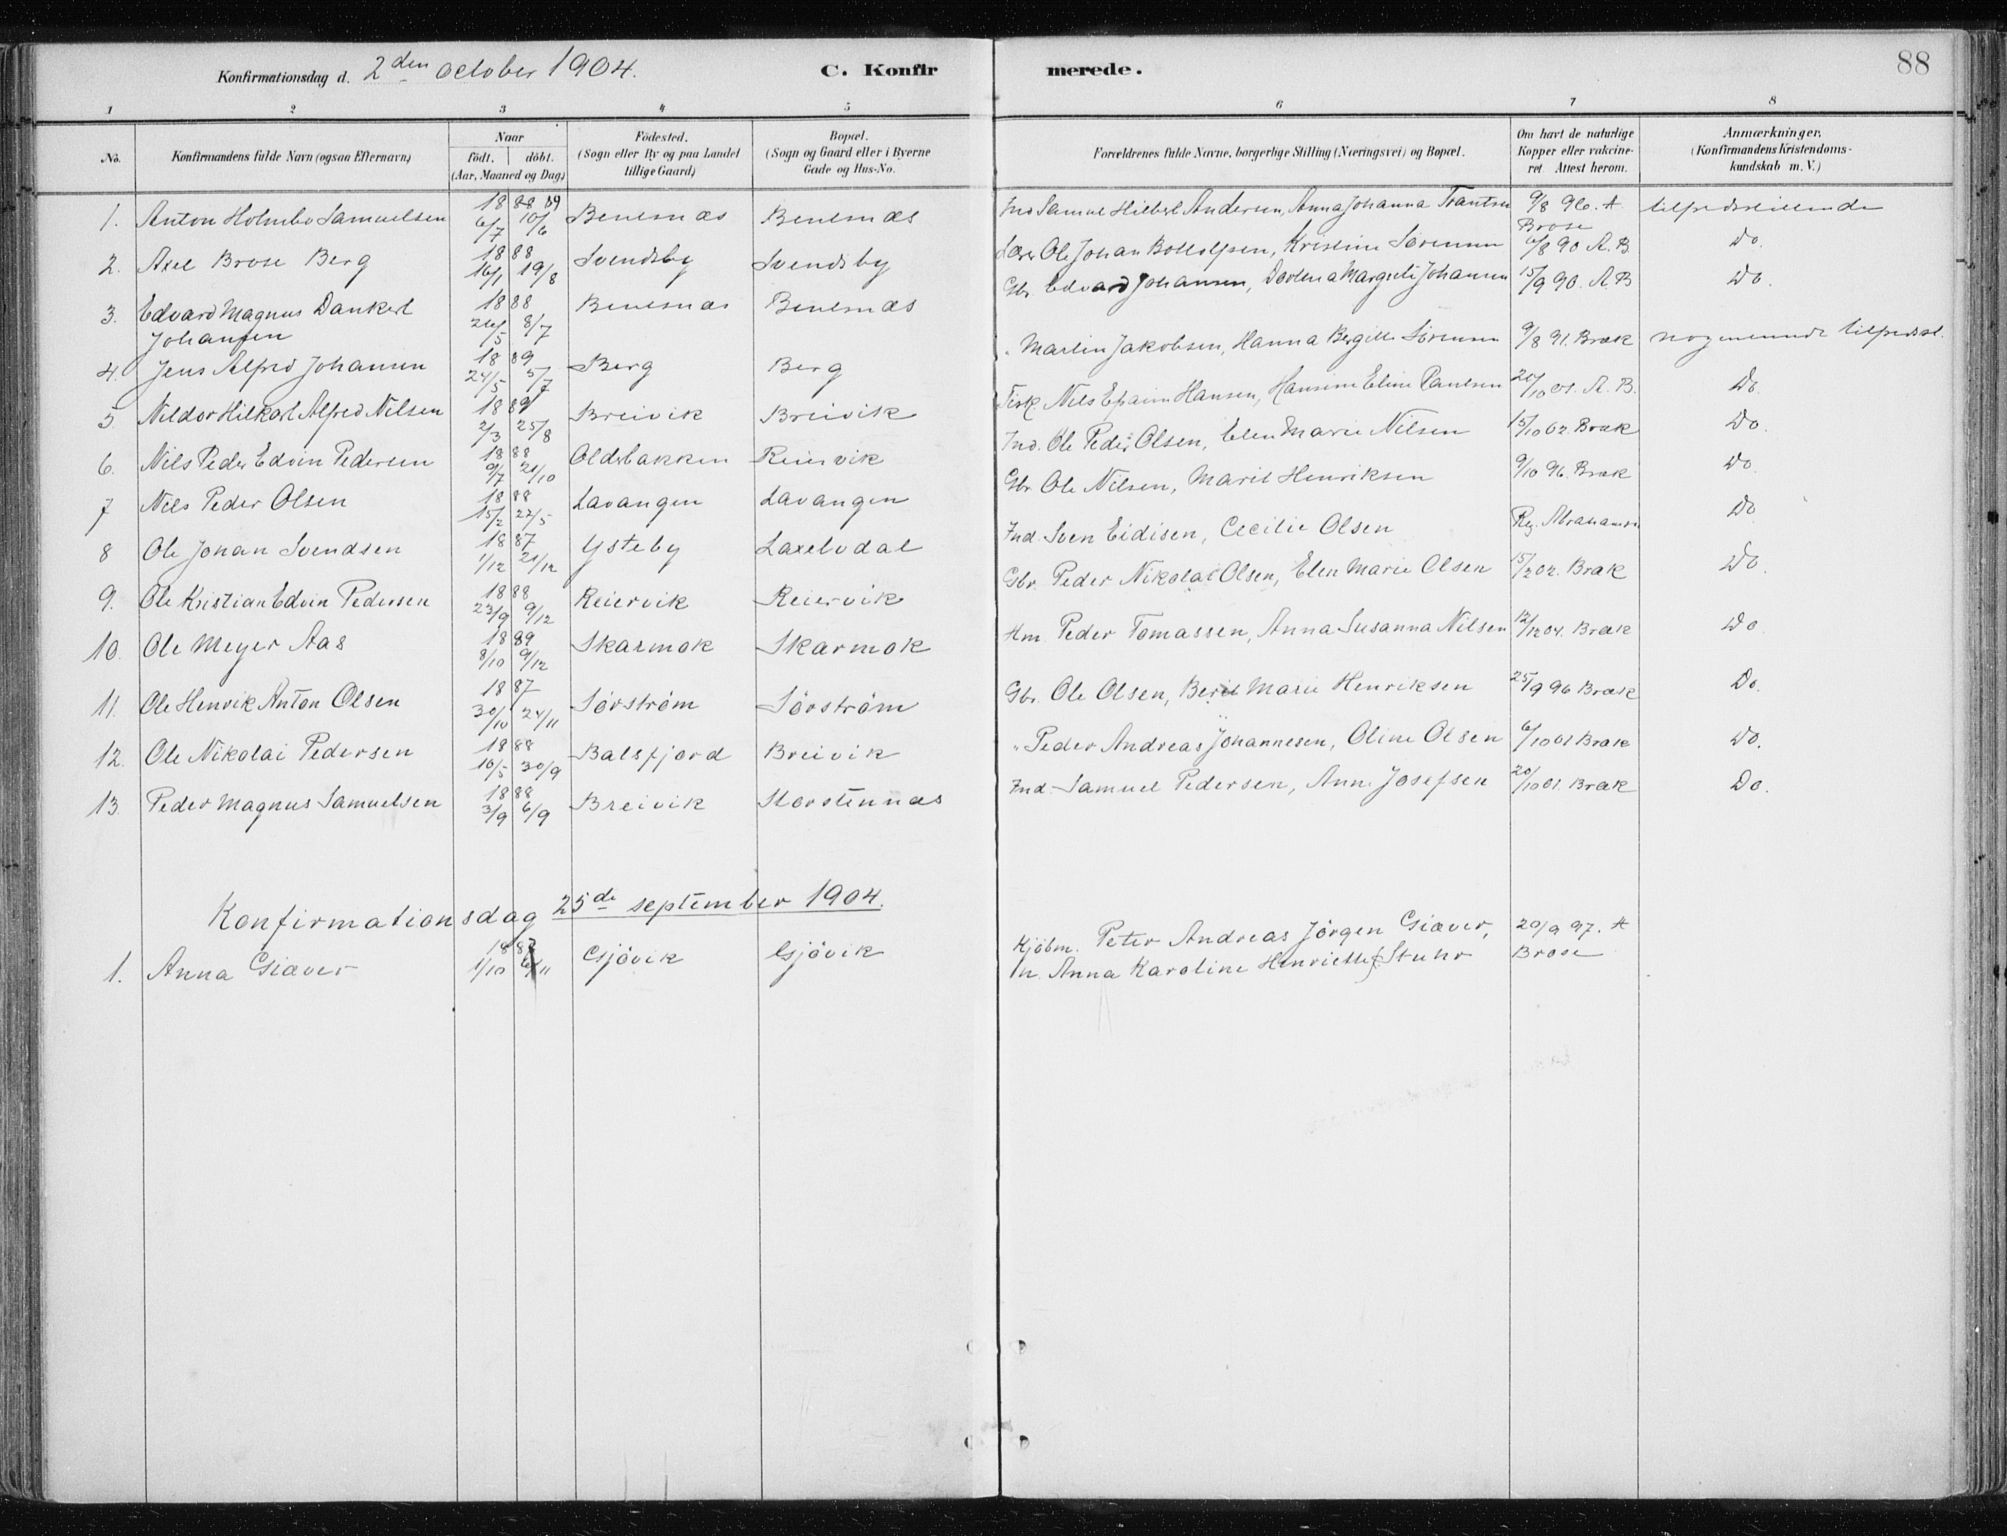 Konfirmationsdag d. 2den october 1904. C. Konfirmerede. 88
1 2 3 4 5 6 7 8
No. Konfirmandens fulde Navn (ogsaa Efternavn) Naar födt. döbt. (Aar, Maaned og Dag) Födested. (Sogn eller By og paa Landet tillige Gaard) Bopæl. (Sogn og Gaard eller i Byerne Gade og Hus-No. Forældrenes fulde Navne, borgerlige Stilling (Næringsvei) og Bopæl. Om havt de naturlige Kopper eller vakcineret Attest herom. Anmærkninger. (Konfirmandens Kristendomskundskab m. V.)
1. Anton Holmbo Samuelsen 1888 89 6/7 10/6 Benesnæs Benesnæs Ind Samuel Hilbert Andersen, Anna Johanna Trantsen 9/8 96. A Brose tilfredsstillende
2. Axel Brose Berg 1888 16/1 19/8 Svendsby Svendsby Lærer Ole Johan Bottolfsen, Kristine Sørensen 6/8 90 A. B. Do.
3. Edvard Magnus Dankert Johansen 1888 26/5 8/7 Benesnæs Benesnæs Gbr Edvard Johansen, Dortea Margrete Johansen 15/9 90. A. B Do.
4. Jens Alfred Johansen 1889 24/5 5/7 Berg Berg " Martin Jakobsen, Hanna Bergitte Sørensen 9/8 91. Bræk nogenlunde tilfredsst.
5. Nildor Hilkart Alfred Nilsen 1889 2/3 25/8 Breivik Breivik Fisk. Nils Efraim Hansen, Hansine Eline Paulsen 20/10 01. A. B. Do.
6. Nils Peder Edvin Pedersen 1888 9/7 21/10 Olderbakken Reiervik Ind. Ole Peder Olsen, Elen Marie Nilsen 15/10 02. Bræk Do.
7 Nils Peder Olsen 1888 15/2 22/5 Lavangen Lavangen Gbr Ole Nilsen, Marit Henriksen 9/10 96. Bræk Do.
8 Ole Johan Svendsen 1887 1/12 21/12 Ysteby Laxelvdal Ind. Sven Eidisen, Cecilie Olsen Rej. Abrahamsen Do
9. Ole Kristian Edvin Pedersen 1888 23/9 9/12 Reiervik Reiervik Gbr. Peder Nikolai Olsen, Elen Marie Olsen 15/2 02. Bræk Do.
10. Ole Meyer Aas 1889 8/10 9/12 Skarmok Skarmok Hm. Peder Tomassen, Anna Susanna Nilsen 12/12 04. Bræk Do
11. Ole Henrik Anton Olsen 1887 30/10 24/11 Sørstrøm Sørstrøm Gbr. Ole Olsen, Berit Marie Henriksen 25/9 96 Bræk Do.
12. Ole Nikolai Pedersen 1888 16/5 30/9 Balsfjord Breivik " Peder Andreas Johannesen, Oline Olsen 6/10 01 Bræk Do.
13. Peder Magnus Samuelsen 1888 3/9 6/9 Breivik Storstennæs Ind. Samuel Pedersen, Anne Josefsen 20/10 01. Bræk Do.
Konfirmationsdag 25de september 1904.
1. Anna Giæver 1887 1/10 6/11 Gjövik Gjövik Kjöbm. Peter Andreas Jörgen Giæver, 20/9 97. A
h. Anna Karoline Henriette f. Stuhr Brose